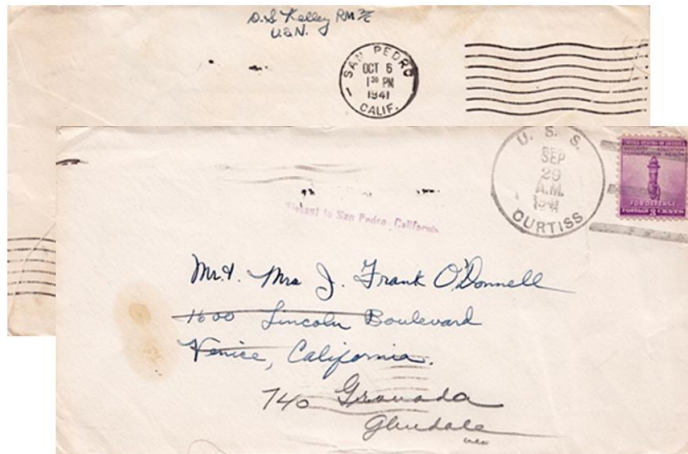 D.S Kelley RM3/c
U.S.N.
SAN PEDRO
OCT 6
1 30 PM
1941
CALIF.
U. S. S.
SEP
29
A.M.
1941
CURTISS
UNITED STATES OF AMERICA
FOR DEFENSE
3 CENTS
to San Pedro, California
Mr. & Mrs J. Frank O'Donnell
1600 Lincoln Boulevard
Venice, California.
740 Granada
Glendale